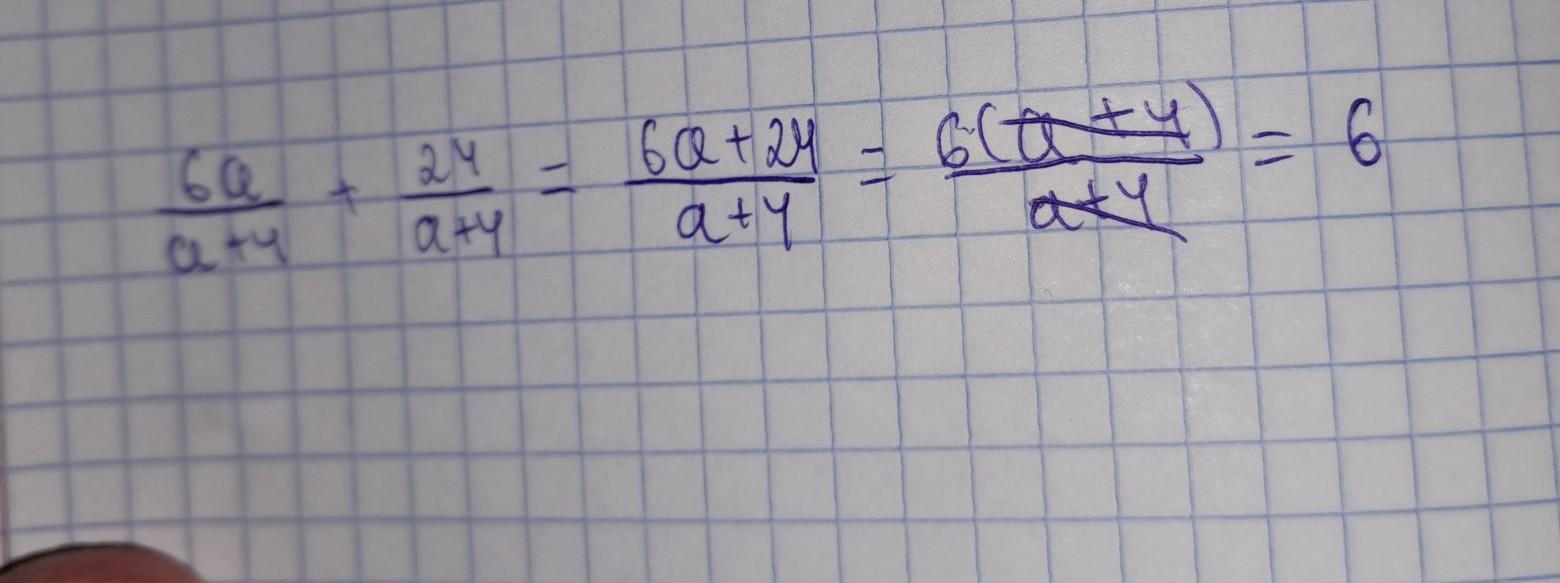 6a/(a+4) + 24/(a+4) = (6a+24)/(a+4) = 6(a+4)/(a+4) = 6